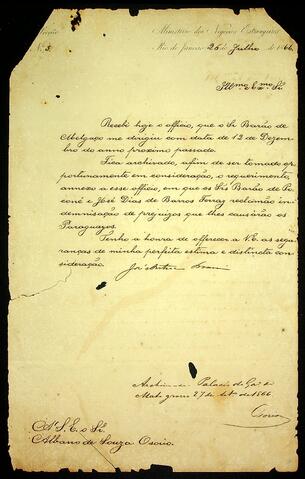 Secção
N. 3.
Ministerio dos Negocios Estrangeiros
Rio de Janeiro 26 de Julho de 1866
Illmo. e Exmo. Sr.
Recebi hoje o officio, que o Sr. Barão de
Melgaço me dirigiu com data de 12 de Dezem-
bro do anno proximo passado.
Fica archivado, afim de ser tomado op-
portunamente em consideração, o requerimento,
annexo a esse officio, em que os Srs. Barão de Po-
coné e José Dias de Barros Ferraz reclamão in-
demnisação de prejuizos que lhes causarão os
Paraguayos.
Tenho a honra de offerecer a V.E. as segu-
ranças de minha perfeita estima e distincta con-
sideração.
Archive-se. Palacio do Go. de
Mato grosso 27 de de 1866
Osorio
A S. E. o Sr.
Albano de Souza Osorio.